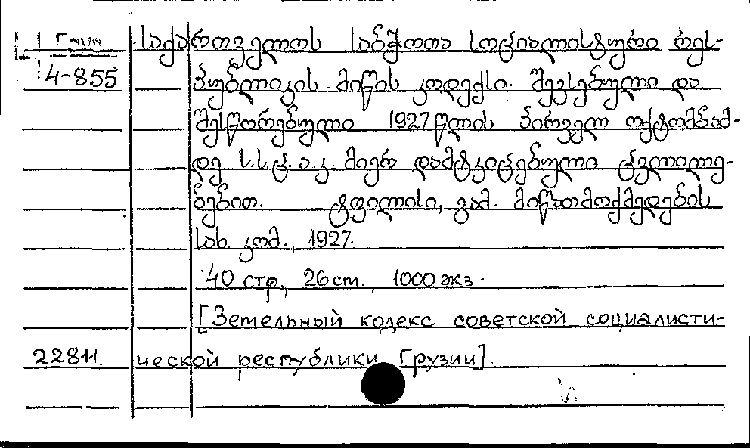 Груз
4-855
საქართველოს საბჭოთა სოციალისტური რეს-
პუბლიკის მიწის კოდექსი. შევსებული და
შესწორებული 1927 წლის პირველ ოქტომბრამ-
დე ს.ს.ც.ა.კ. მიერ დამტკიცებული ცვლილე-
ბებით. ტფილისი, გამ. მიწათმოქმედების
სახ. კომ., 1927.
40 стр., 26 cm., 1000 экз.
[Земельный кодекс советской социалисти-
ческой республики Грузии].
22811